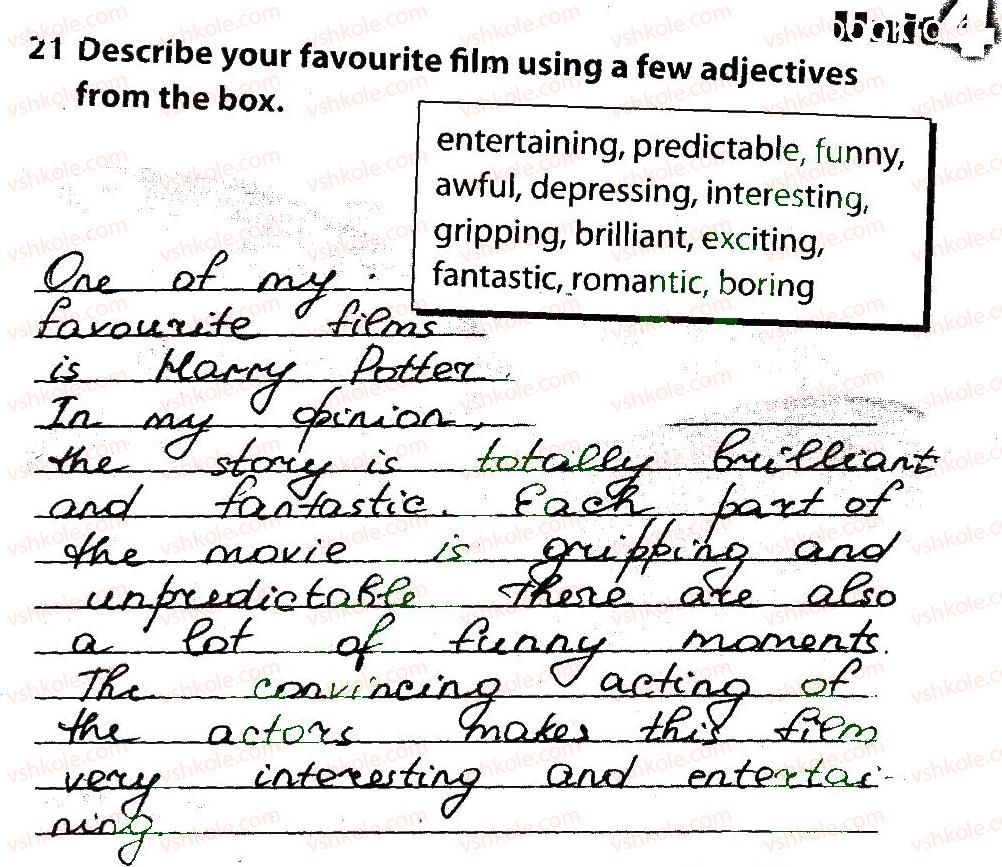 21 Describe your favourite film using a few adjectives
from the box.
entertaining, predictable, funny,
awful, depressing, interesting,
gripping, brilliant, exciting,
fantastic, romantic, boring
One of my
favourite films
is Harry Potter.
In my opinion,
the story is totally brilliant
and fantastic. Each part of
the movie is gripping and
unpredictable There are also
a lot of funny moments.
The convincing acting of
the actors makes this film
very interesting and entertai-
ning.
4
vshkole.com